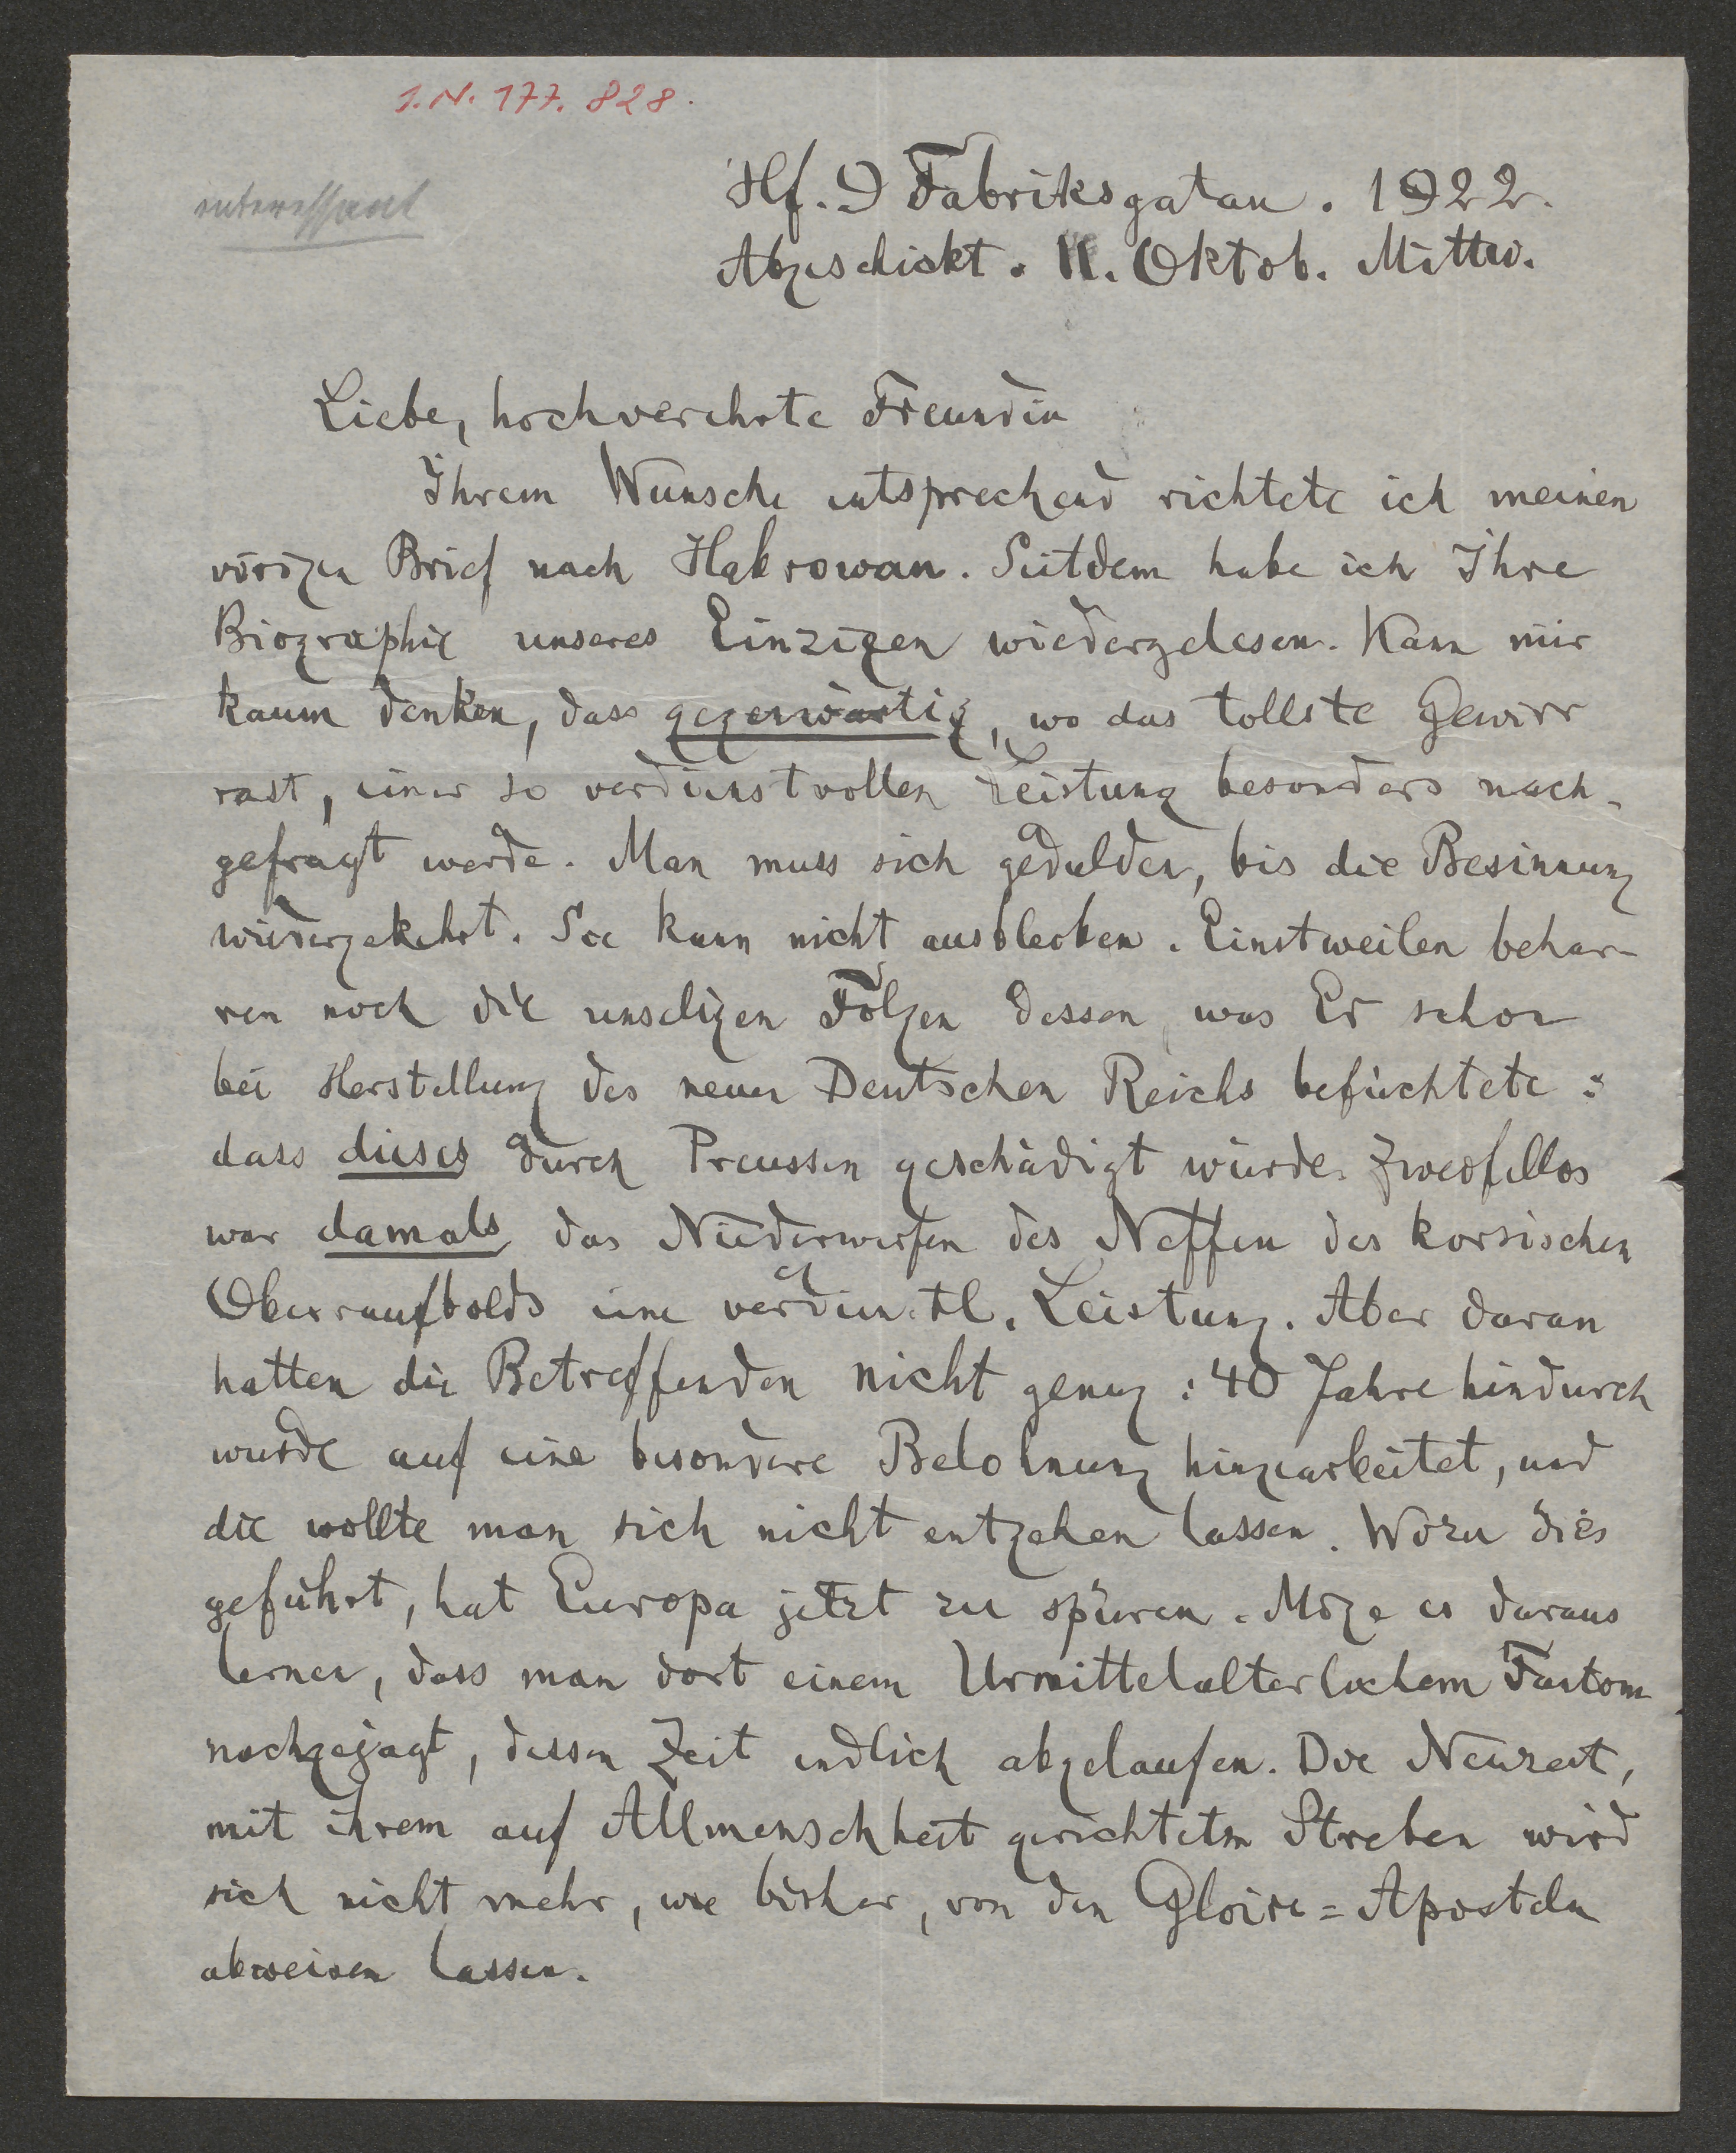 I.N. 177.828.
interessant
Hf. 9 Fabriksgatan. 1922.
Abgeschickt. 11. Oktob. Mittw.
Liebe, hochverehrte Freundin
Ihrem Wunsche entsprechend richtete ich meinen
vorigen Brief nach Habrowan. Seitdem habe ich Ihre
Biographie unseres Einzigen wiedergelesen. Kann mir
kaum denken, dass gegenwärtig, wo das tollste Gewirr
rast, einer so verdienstvollen Leistung besonders nach-
gefragt werde. Man muss sich gedulden, bis die Besinnung
wiedergekehrt. Sie kann nicht ausbleiben. Einstweilen behar-
ren noch die unseligen Folgen dessen, was Er schon
bei Herstellung des neuen Deutschen Reichs befüchtete:
dass dieses durch Preussen geschädigt würde. Zweifellos
war damals das Niederwerfen des Neffen des korsischen
Oberraufbolds eine verdienstl. Leistung. Aber daran
hatten die Betreffenden nicht genug: 40 Jahre hindurch
wurde auf eine besondere Belohnung hingearbeitet, und
die wollte man sich nicht entgehen lassen. Wozu dies
geführt, hat Europa jetzt zu spüren. Möge es daraus
lernen, dass man dort einem Urmittelalterlichem Fantom
nachgejagt, dessen Zeit endlich abgelaufen. Die Neuzeit,
mit ihrem auf Allmenschheit gerichtetem Streben wird
sich nicht mehr, wie bisher, von den Gloire=Aposteln
abweisen lassen.